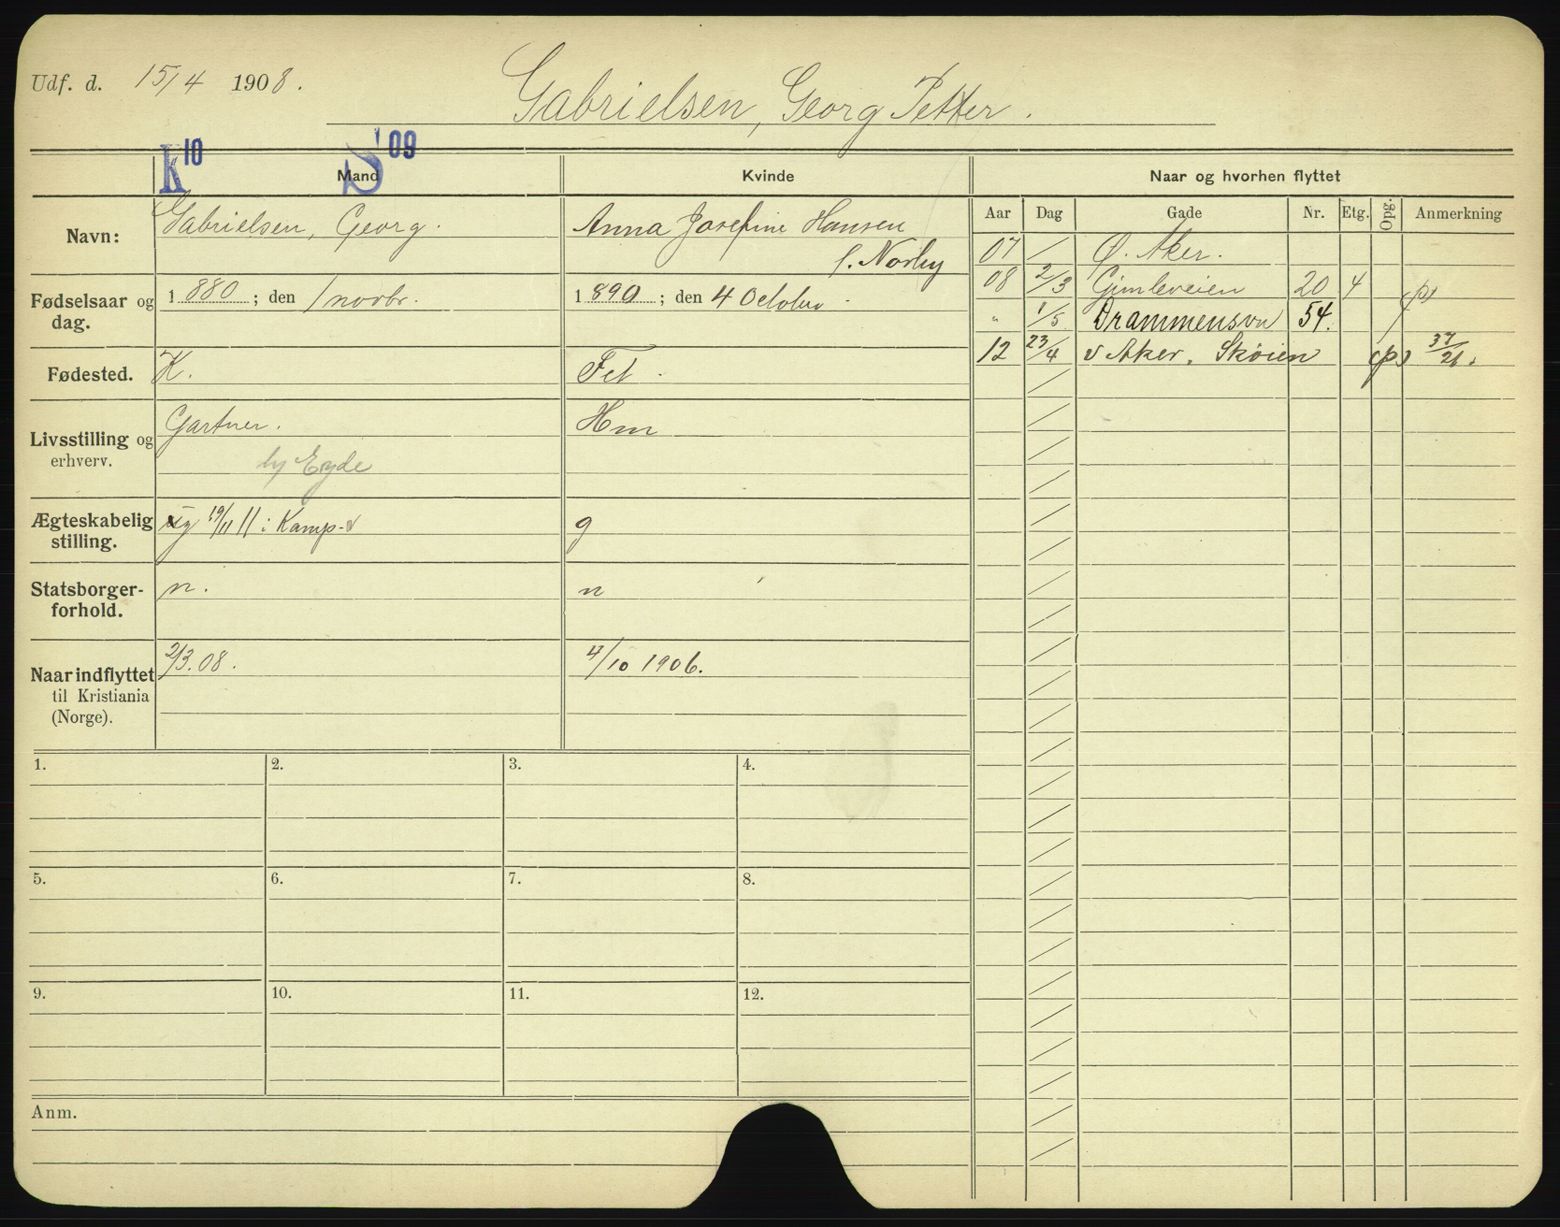 Udf. d. 15/4 1908.
Gabrielsen, Georg Petter.
K10 S'09
Mand Kvinde Naar og hvorhen flyttet
Navn: Gabrielsen, Georg. Anna Josefine Hansen
f. Norby
Aar Dag Gade Nr. Etg. Opg. Anmerkning
07 / Ø. Aker.
08 2/3 Gimleveien 20 4 (p)
" 1/5 Drammensvn 54.
12 23/4 v Aker, Skøien (p) 37/21.
Fødselsaar og dag. 1880; den 1 novbr. 1890; den 4 October.
Fødested. K. Fet.
Livsstilling og erhverv. Gartner. Hm
hj Eyde
Ægteskabelig stilling. ug 19/11 11 i Kamp. g
Statsborger-
forhold. n. n
Naar indflyttet
til Kristiania
(Norge). 2/3.08. 4/10 1906.
1. 2. 3. 4.
5. 6. 7. 8.
9. 10. 11. 12.
Anm.